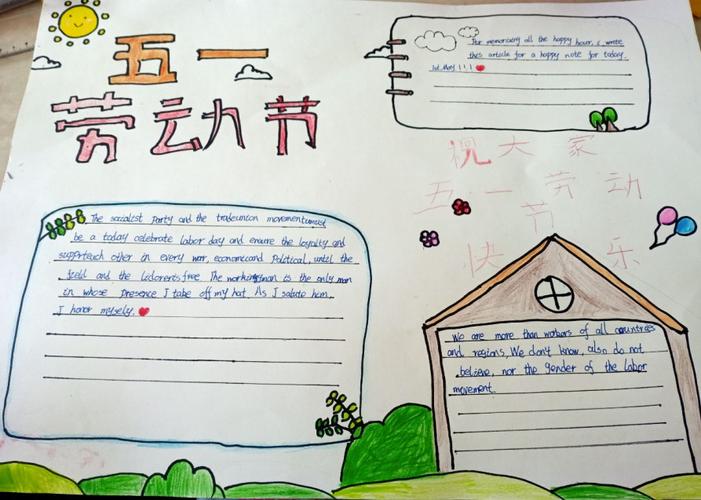 五一
劳动节
For memorizing all the happy hour, i write
this article for a happy note for today
1st May!!!
祝大家
五一劳动
节
快乐
The socialist party and the tradeunion movementumust
be a today celebrate labor day and ensure the loyalty and
support each other in every war, economic and political, until the
field and the
free. The workingman is the only man
in whose presence I take off my hat As I salute him.
I honor myself.
We are more than workers of all countries
and regions, We don't know, also do not
believe, nor the gender of the labor
movement.